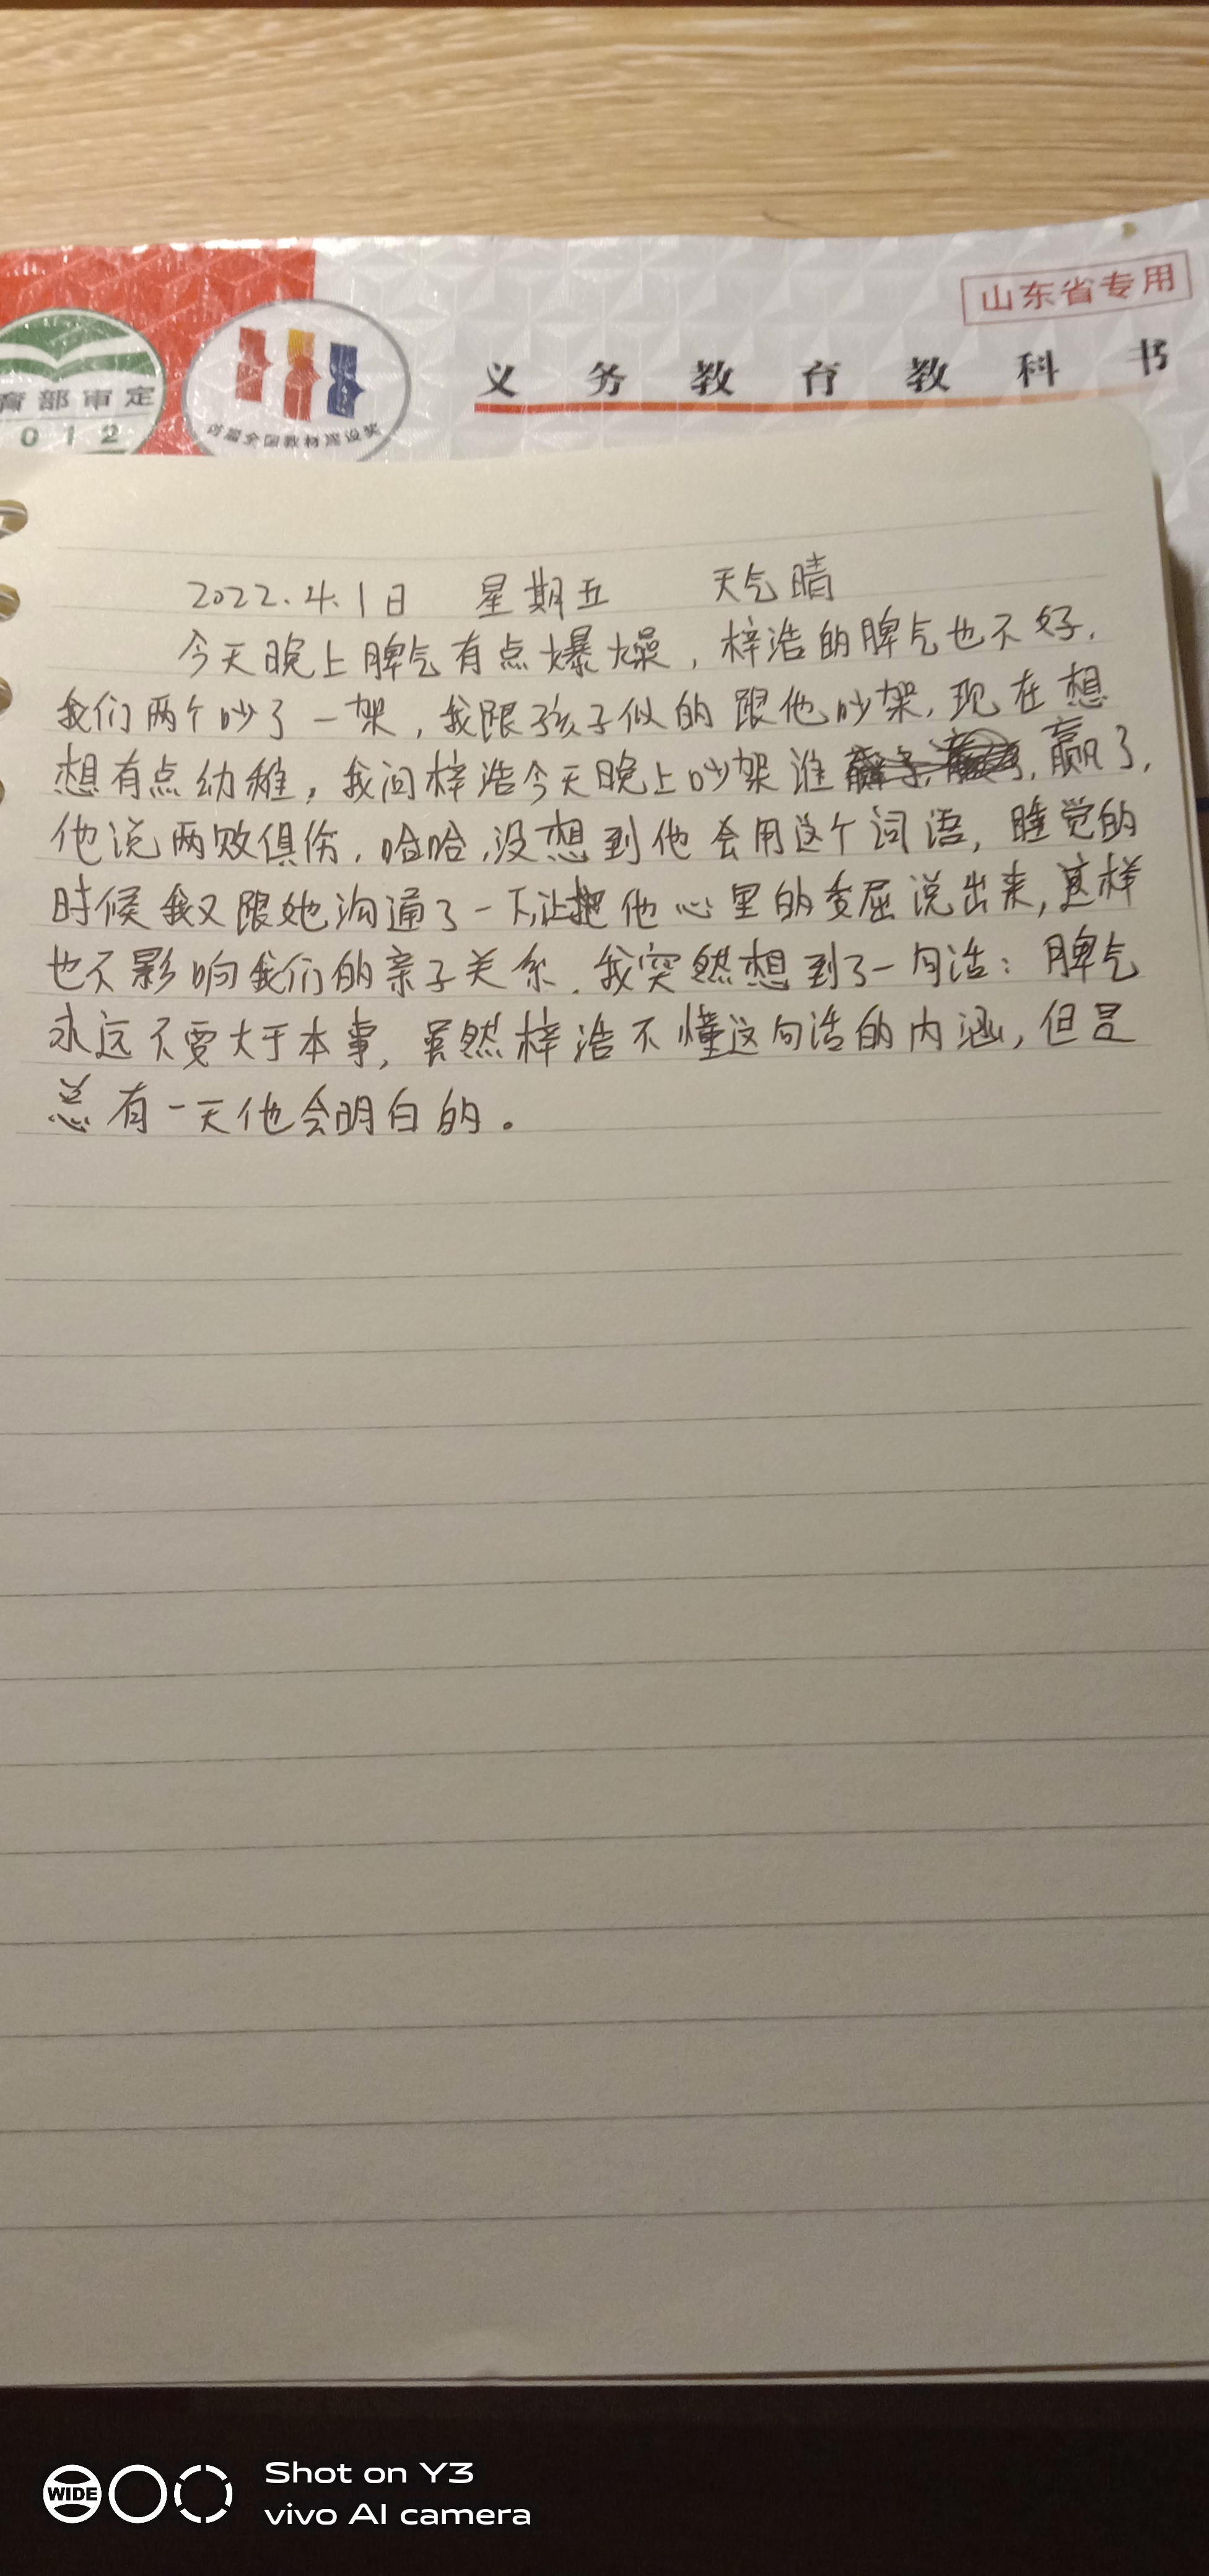 山东省专用
义务教育教科书
育部审定
012
首届全国教材建设奖
2022.4.1日 星期五 天气晴
今天晚上脾气有点爆燥,梓浩的脾气也不好,
我们两个吵了一架,我跟孩子似的跟他吵架,现在想
想有点幼稚。我问梓浩今天晚上吵架谁赢了,
他说两败俱伤,哈哈,没想到他会用这个词语,睡觉的
时候我又跟她沟通了一下,让把他心里的委屈说出来,这样
也不影响我们的亲子关系.我突然想到了一句话:脾气
永远不要大于本事,虽然梓浩不懂这句话的内涵,但是
总有一天他会明白的。
WIDE
Shot on Y3
vivo AI camera